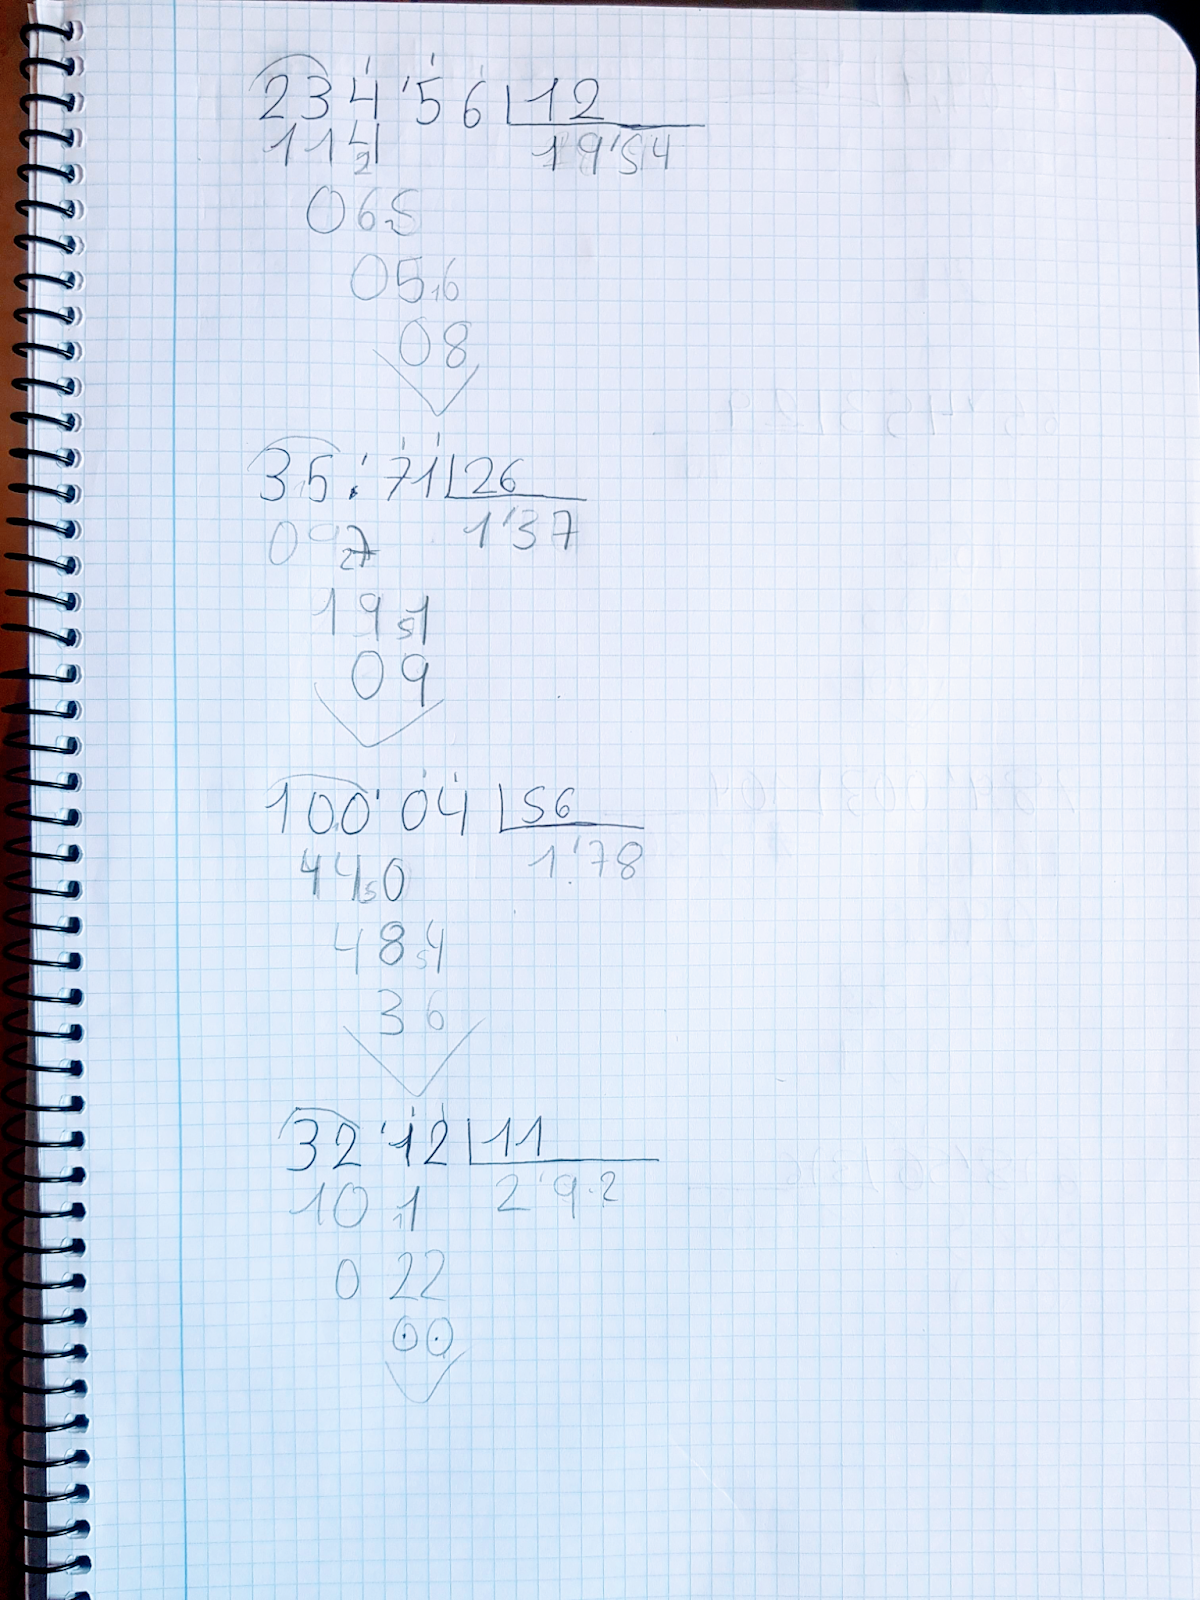 234'56 12
114 19'54
065
056
08
35'71 26
097 1'37
191
09
100'04 56
440 1'78
484
36
32'12 11
101 2'92
022
00